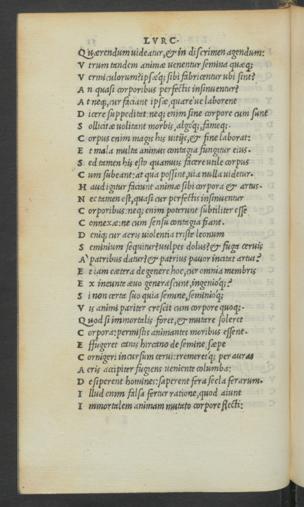 LVRC.
Quærendum uideatur, & in discrimen agendum:
V trum tandem animæ uenentur semina quæq;
V ermiculorum? ipsæq; sibi fabricentur ubi sint?
A n quasi corporibus perfectis insinuentur?
A t neq; cur faciant ipsæ, quare'ue laborent
D icere suppeditat. neq; enim sine corpore cum sunt
S ollicitæ uolitant morbis, algoq;, fameq;.
C orpus enim magis his uitijs, & fine laborat:
E t mala multa animus contagia fungitur eius.
S ed tamen his esto quamuis facere utile corpus
C um subeant: at qua possint, uia nulla uidetur.
H aud igitur faciunt animæ sibi corpora & artus.
N ec tamen est, quasi cur perfectis insinuentur
C orporibus: neq; enim poterunt subtiliter esse
C onnexæ: ne cum sensu contagia fiant.
D eniq; cur acris uiolentia triste leonum
S eminium sequitur? uulpes dolus? & fuga ceruis
A patribus datur? & patrius pauor incitat artus?
E t iam cætera de genere hoc, cur omnia membris
E x ineunte æuo generascunt, ingenioq;?
S i non certa suo quia semine, seminioq;
V is animi pariter crescit cum corpore quoq;.
Quod si immortalis foret, & mutare soleret
C orpora: permistis animantes moribus essent.
E ffugeret canis hircano de semine sæpe
C ornigeri incursum cerui: tremeretq; per auras
A eris accipiter fugiens ueniente columba:
D esiperent homines: saperent fera secla ferarum.
I llud enim falsa fertur ratione, quod aiunt
I mmortalem animam mutato corpore flecti: